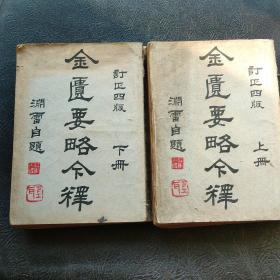 訂正四版
金匱要略今釋
下冊
淵雷自題
訂正四版
金匱要略今釋
上冊
淵雷自題